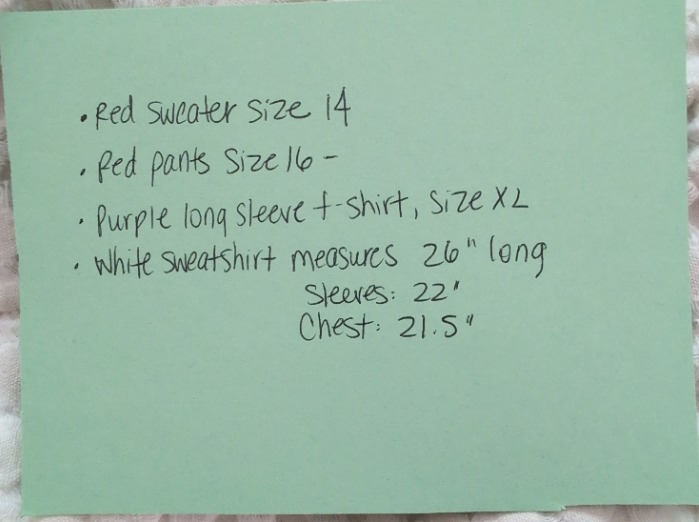 • Red sweater size 14
• Red pants size 16 -
• Purple long sleeve t-shirt, size XL
• White sweatshirt measures 26" long
Sleeves: 22"
Chest: 21.5"